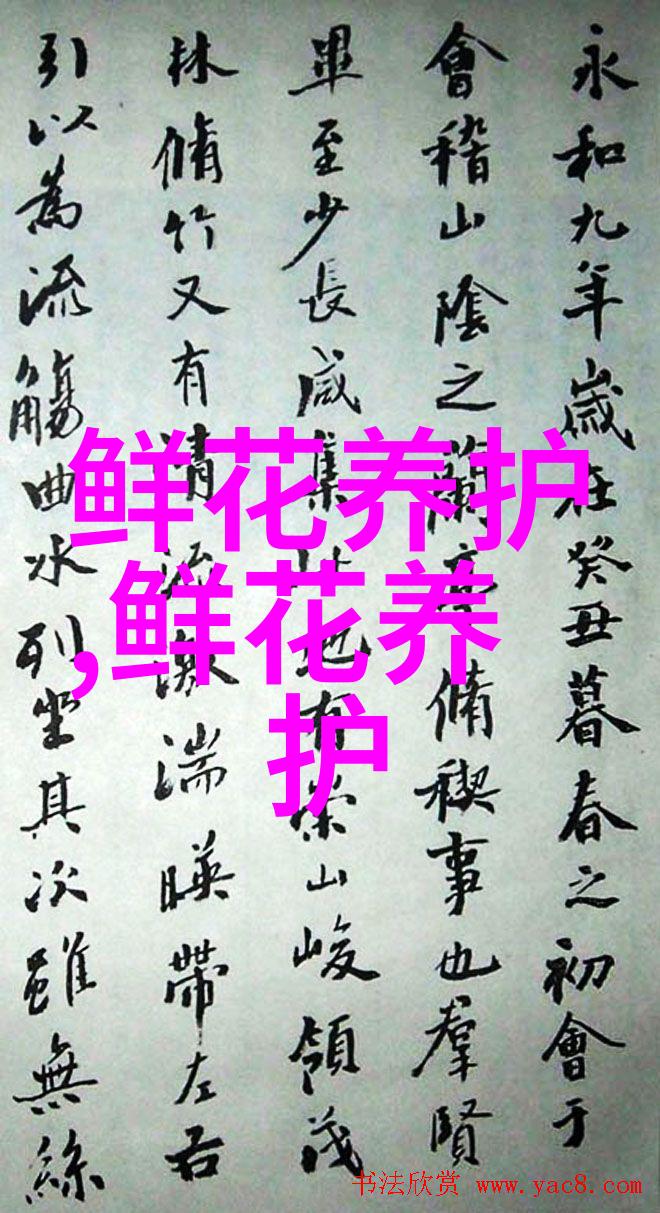 永和九年歲在癸丑暮春之初會于
會稽山陰之蘭亭脩稧事也羣賢
畢至少長咸集此地有崇山峻領茂
林脩竹又有清流激湍暎帶左右
引以為流觴曲水列坐其次雖無絲
鲜花养护
,鲜花养
护
书法欣赏 www.yac8.com